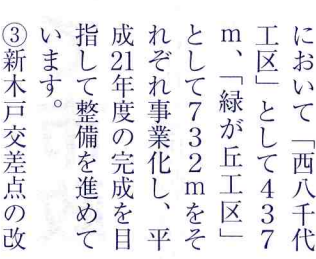 において「西八千代
工区」として437
m、「緑が丘工区」
として732mをそ
れぞれ事業化し、平
成21年度の完成を目
指して整備を進めて
います。
③新木戸交差点の改